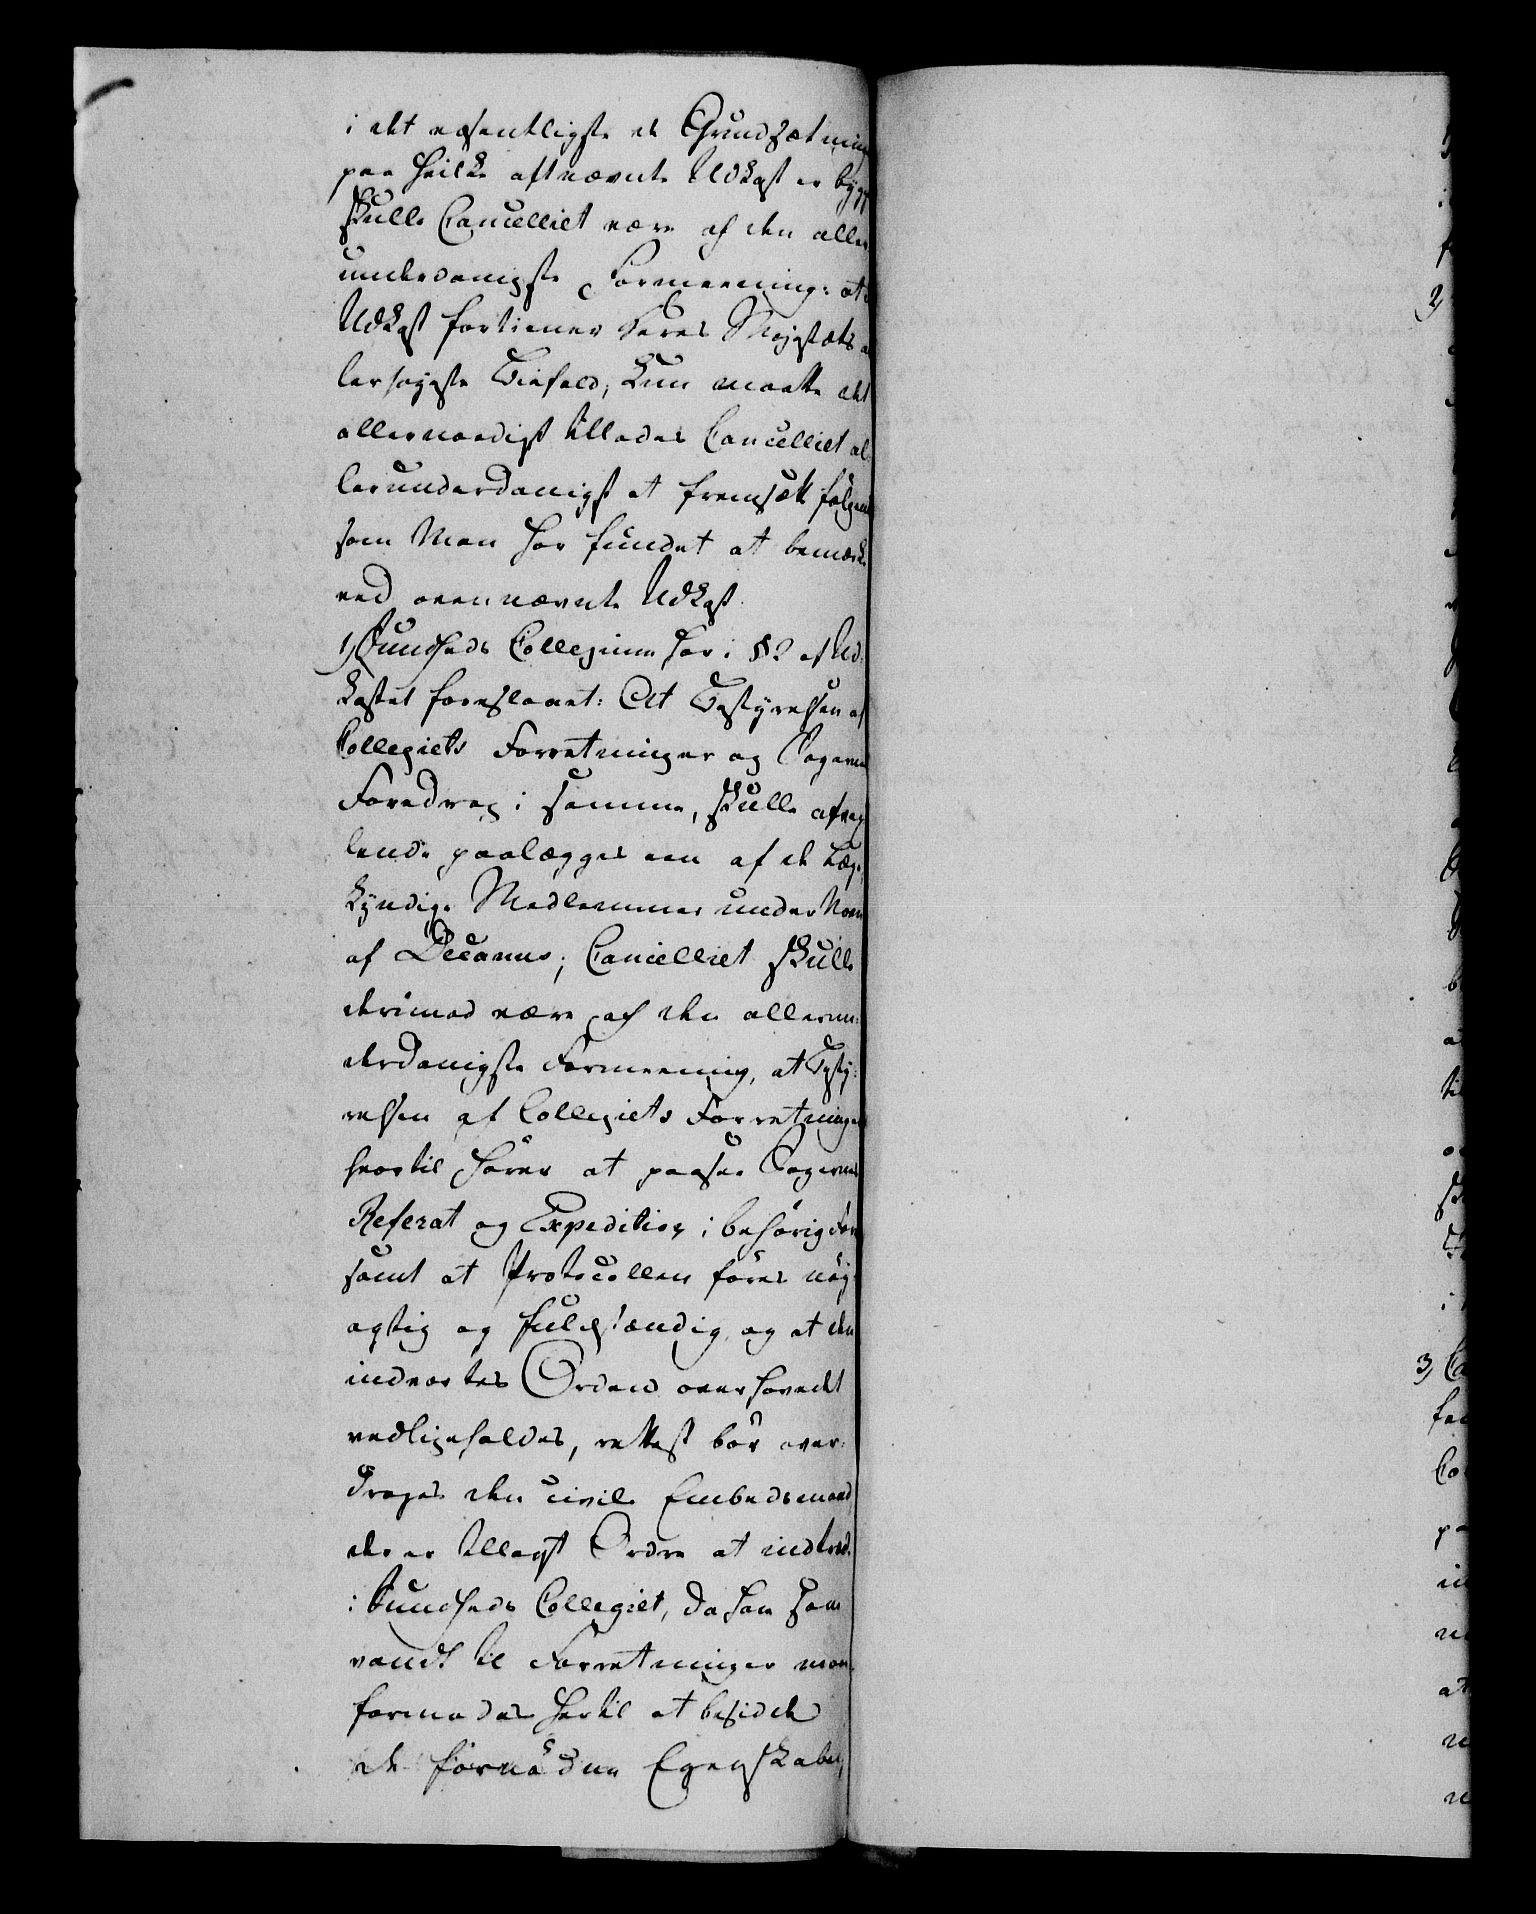 i det væsentligste de Grundsætning
paa hvilke oftnævnte Udkast er bygt
skulle Cancelliet være af den aller
underdanigste Formeening: at
Udkast fortiener Deres Majestæts al
lerhøyeste Biefald, kun maatte det
allernaadigst tillades Cancelliet al:
lerunderdanigst at fremsætte følgende
som Man har fundet at bemærke
ved ovennævnte Udkast.
1) Sundheds Collegium har i § 2 af Ud:
kastet foreslaaet: At Bestyrelsen af
Collegiets Forretninger og Sagernes
Foredrag i samme, skulle afvex
lende paalægges een af de Læge
kyndige Medlemmer under Navn
af Decanus; Cancelliet skulle
derimod være af den allerun:
derdanigste Formeening, at Besty:
relsen af Collegiets Forretninger
hvortil hører at paasee Sagernes
Referat og Expedition i behørig Form
samt at Protocollen føres nøy:
agtig og fuldstændig og at den
indvortes Orden overhovedet
vedligeholdes, rettest bør over:
drages den civile Embedsmand
der er tillagt Ordre at indtræde
i Sundheds Collegiet, da han som
vandt til Forretninger maae
formodes hertil at besidde
de fornødne Egenskaber,
2)
3) Ca